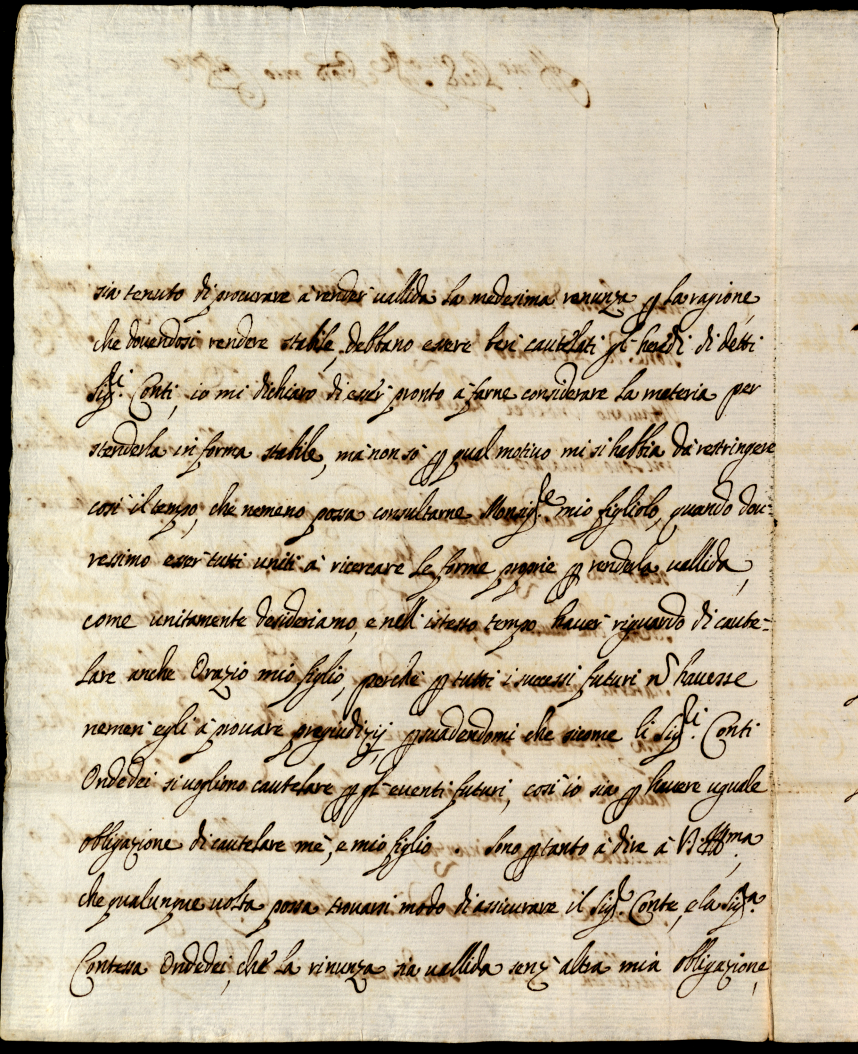 sia tenuto di procurare a' render' vallida la medesima renunza p la ragione,
che douendosi rendere stabile, debbano essere ben' cautelati gl' heredi di detti
Sig.ri Conti, io mi dichiaro di esser' pronto a' farne considerare la materia per
stenderla in forma stabile, ma' non so' p qual motiuo mi si habbia da' restringere
cosi' il tempo, che nemeno possa consultarne Monsig.re mio figliolo, quando dou-
ressimo esser' tutti uniti a' ricercare le forme proprie p renderla vallida,
come unitamente desideriamo, e nell' istesso tempo hauer' riguardo di caute-
lare anche Orazio mio figlio, perche' p tutti i successi futuri n hauesse
nemen' egli a' prouare pregiudizij, psuadendomi che sicome li Sig.ri Conti
Ondedei si uoglimo cautelare p gl' euenti futuri, cosi' io sia p hauere uguale
obbligazione di cautelare me', e mio figlio. Sono ptanto a' dire a' V.S. Ill.ma,
che qualunque uolta possa trouarsi modo di assicurare il Sig.r Conte, e la Sig.ra
Contessa Ondedei, che' la rinunza sia uallida senz' altra mia obbligazione,